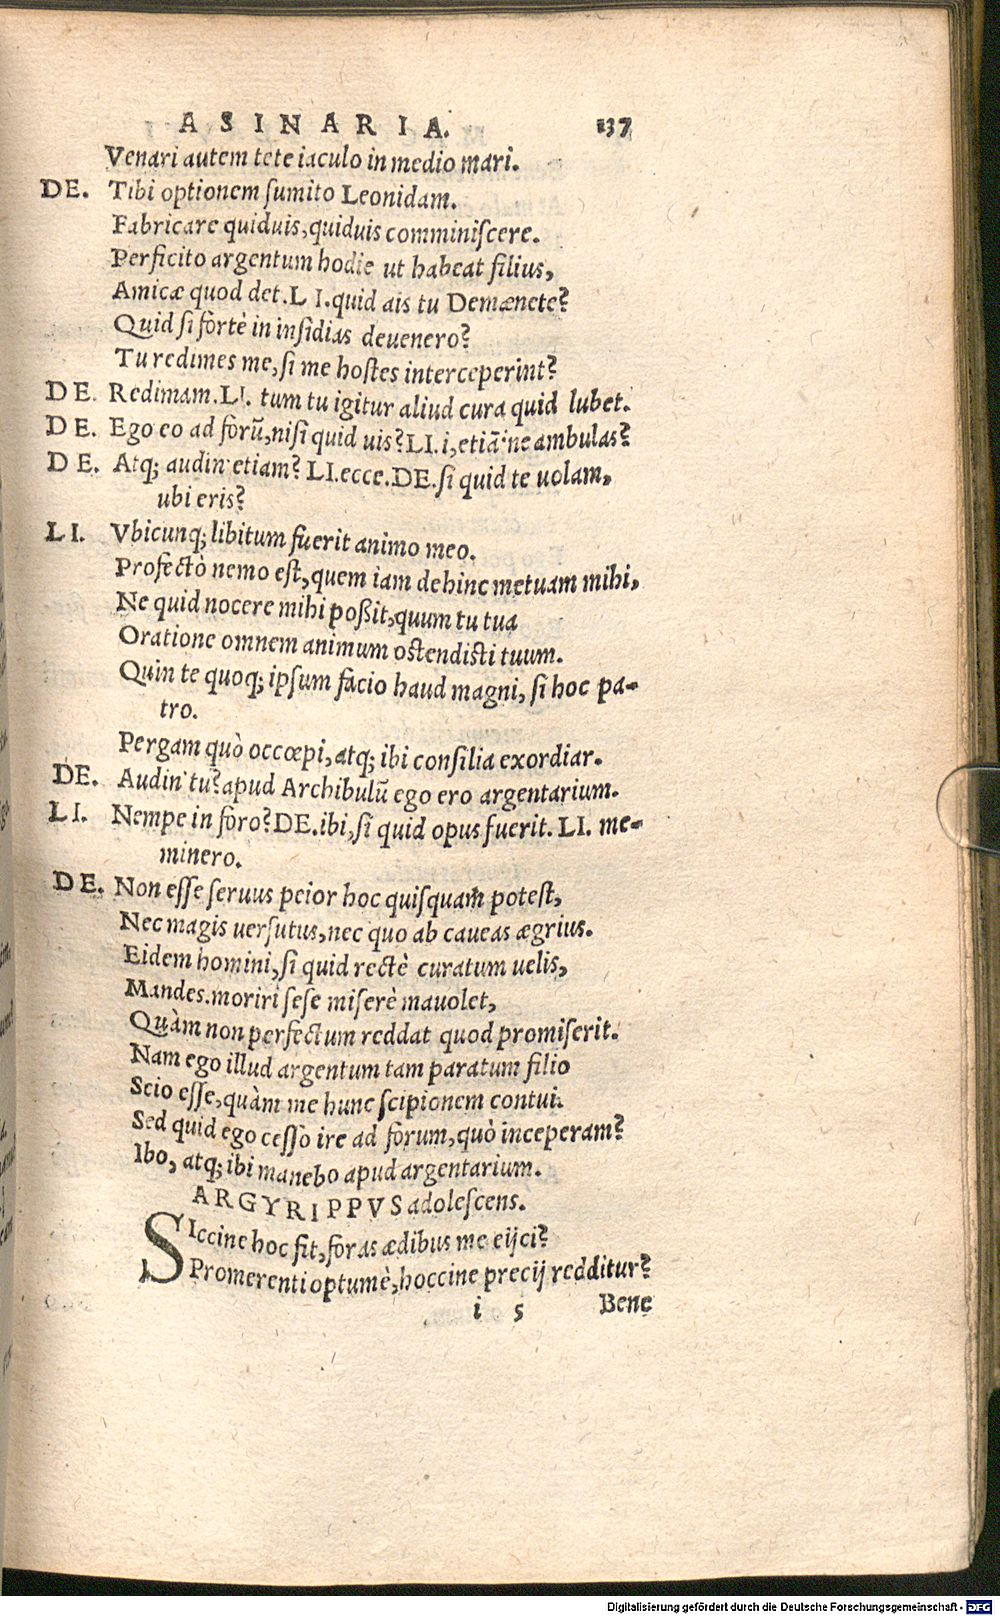 ASINARIA. 137
Venari autem tete iaculo in medio mari.
DE. Tibi optionem sumito Leonidam.
Fabricare quiduis, quiduis comminiſcere.
Perficito argentum hodie ut habeat filius,
Amicæ quod det. LI. quid ais tu Demænete?
Quid ſi fortè in inſidias deuenero?
Tu redimes me, ſi me hoſtes interceperint?
DE. Redimam. LI. tum tu igitur aliud cura quid lubet.
DE. Ego eo ad forũ, niſi quid uis? LI. i, etiã'ne ambulas?
DE. Atq; audin' etiam? LI. ecce. DE. ſi quid te uolam,
ubi eris?
LI. Vbicunq; libitum fuerit animo meo.
Profectò nemo eſt, quem iam dehinc metuam mihi,
Ne quid nocere mihi poßit, quum tu tua
Oratione omnem animum oſtendiſti tuum.
Quin te quoq; ipſum facio haud magni, ſi hoc pa-
tro.
Pergam quò occœpi, atq; ibi conſilia exordiar.
DE. Audin' tu? apud Archibulũ ego ero argentarium.
LI. Nempe in foro? DE. ibi, ſi quid opus fuerit. LI. me-
minero.
DE. Non eſſe ſeruus peior hoc quiſquam poteſt,
Nec magis uerſutus, nec quo ab caueas ægrius.
Eidem homini, ſi quid rectè curatum uelis,
Mandes. moriri ſeſe miſerè mauolet,
Quàm non perfectum reddat quod promiſerit.
Nam ego illud argentum tam paratum filio
Scio eſſe, quàm me hunc ſcipionem contui.
Sed quid ego ceſſo ire ad forum, quò inceperam?
Ibo, atq; ibi manebo apud argentarium.
ARGYRIPPVS adoleſcens.
SIccine hoc fit, foras ædibus me eijci?
Promerenti optumè, hoccine precij redditur?
i 5 Bene
Digitalisierung gefördert durch die Deutsche Forschungsgemeinschaft - DFG